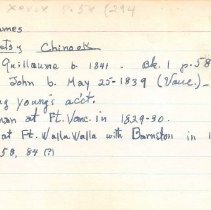 p.58 (294
ames
tsy Chinook
Guillaume b. 1841. Bk. 1 p.58
John b. May 25-1839 (Vanc.)-
g young's acc't.
man at Ft. Vanc. in 1829-30.
at Ft. Walla Walla with Barnston in 1
58, 84 (?)